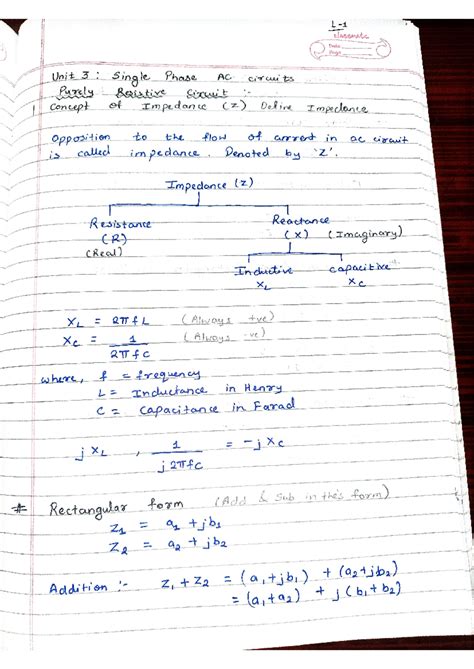 L-1
classmate
Date
Page
Unit 3 : Single Phase AC circuits
Purely Resistive Circuit :-
1 Concept of Impedance (Z) Define Impedance
Opposition to the flow of current in ac circuit
is called impedance. Denoted by 'Z'.
Impedance (Z)
Resistance Reactance
(R) (X) (Imaginary)
(Real)
Inductive capacitive
XL XC
XL = 2πfL (Always +ve)
XC = 1/2πfC (Always -ve)
where, f = frequency
L = Inductance in Henry
C = Capacitance in Farad
j XL , 1/j2πfC = -j XC
# Rectangular form (Add & Sub in this form)
Z1 = a1 + jb1
Z2 = a2 + jb2
Addition :- Z1 + Z2 = (a1 + jb1) + (a2 + jb2)
= (a1 + a2) + j (b1 + b2)